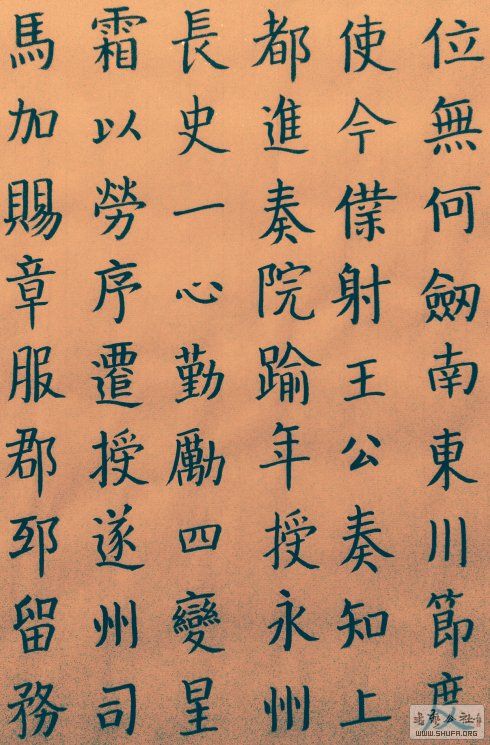 位無何劒南東川節度
使今僕射王公奏知上
都進奏院踰年授永州
長史一心勤勵四變星
霜以勞序遷授遂州司
馬加賜章服郡邳留務
WWW.SHUFA.ORG